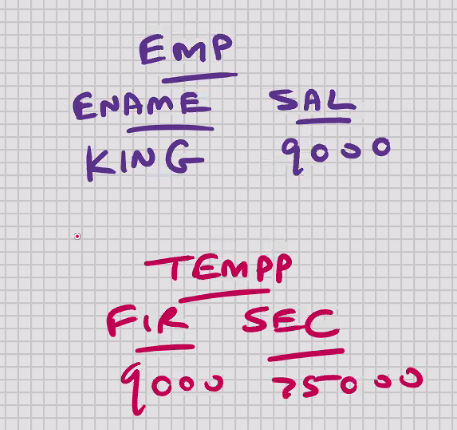 EMP
ENAME SAL
KING 9000
TEMPP
FIR SEC
9000 25000